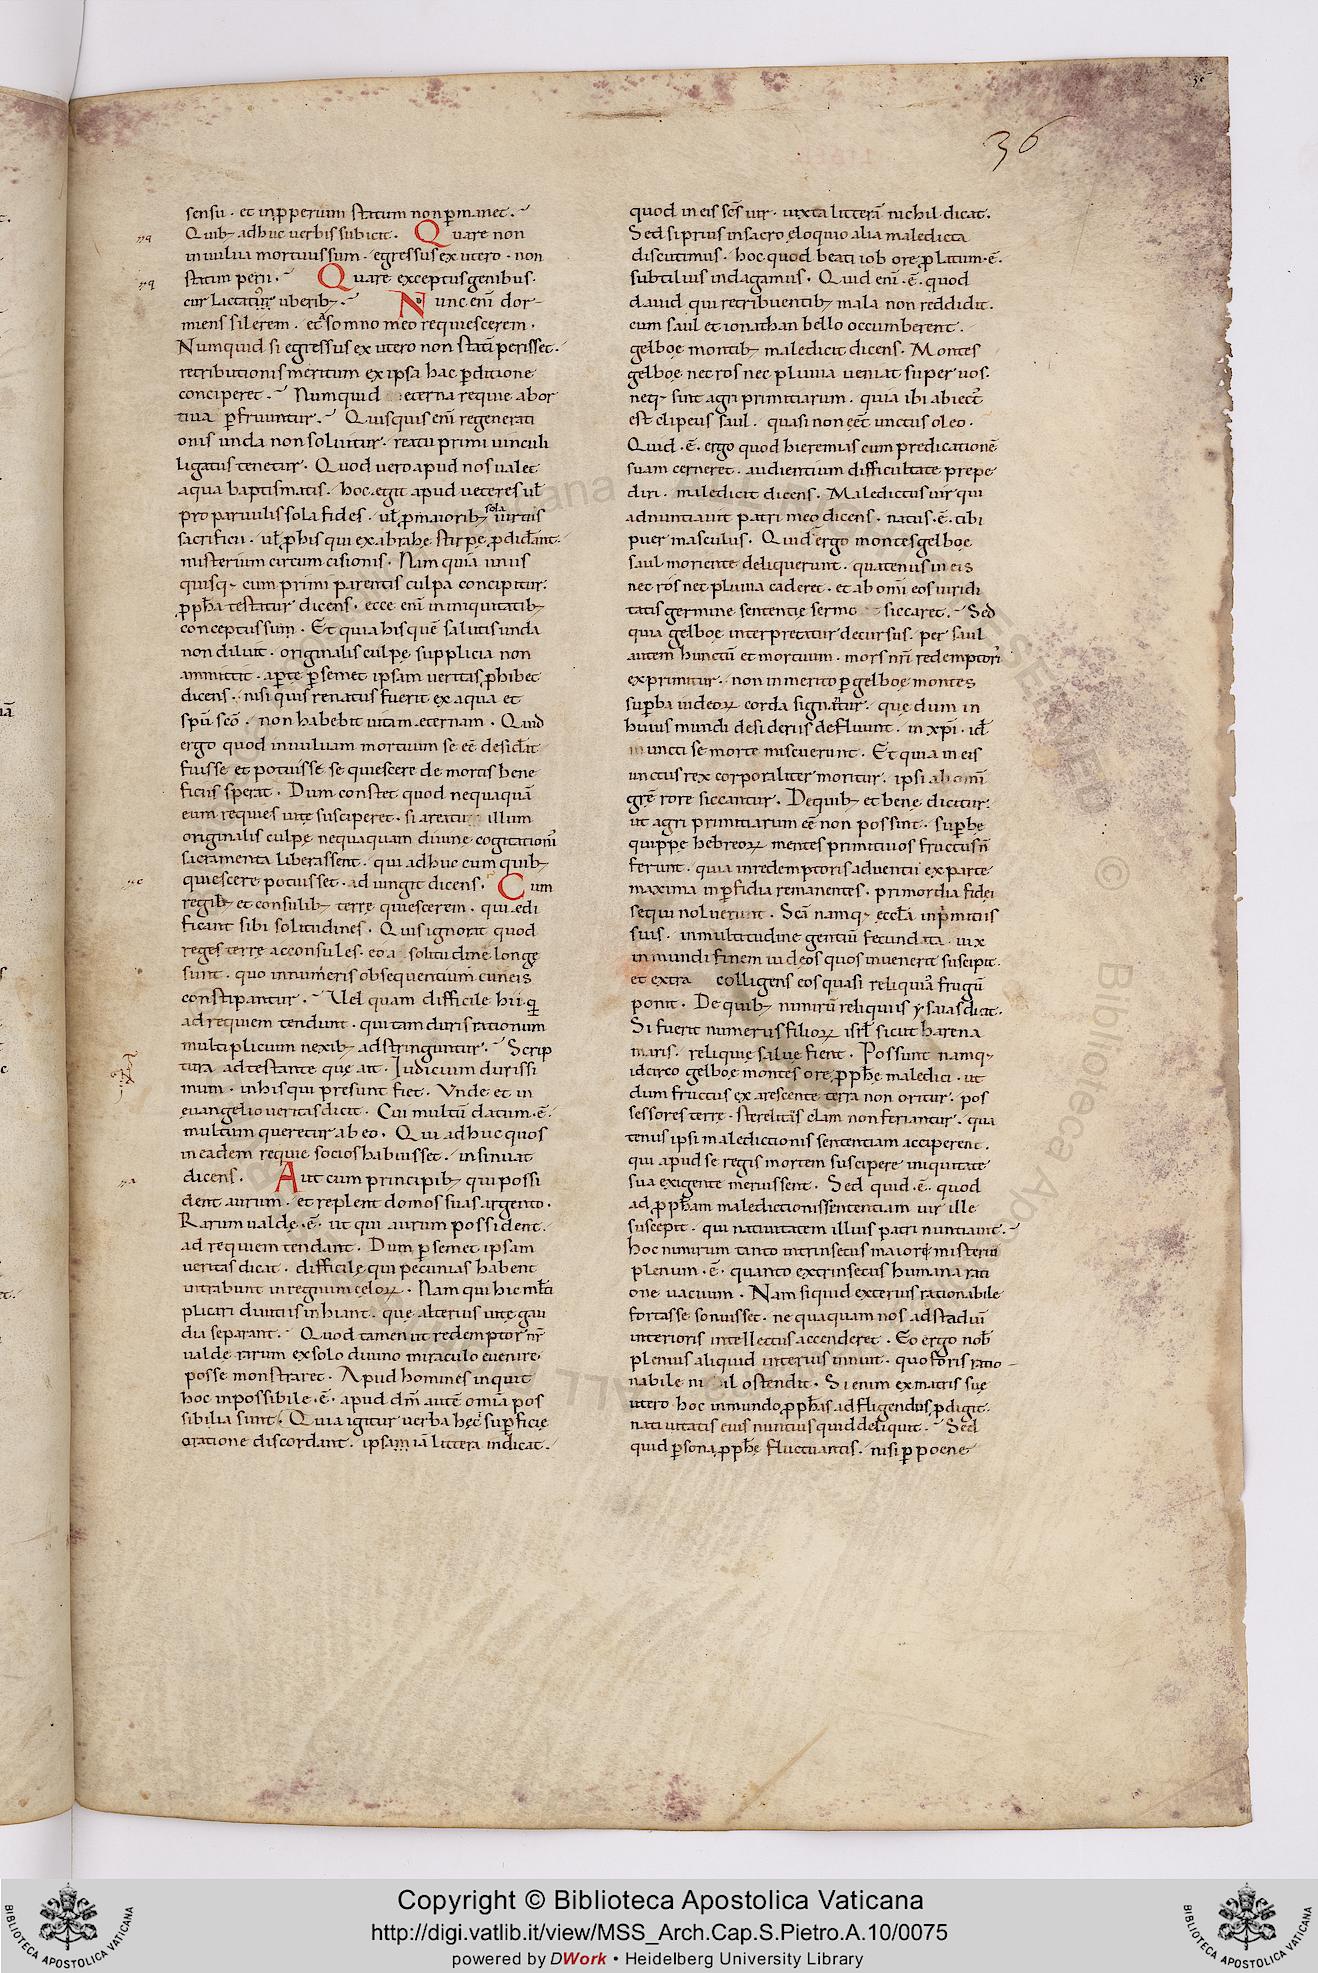 36
sensu · et in ꝓperium statum non ꝑmanet.
Quibꝫ adhuc uerbis subicit. Quare non
in uulua mortuus sum · egressus ex utero · non
statim perii. Quare exceptus genibus.
cur lactatus uberibꝫ. Nunc eni dor-
miens silerem . et a somno meo requiescerem .
Numquid si egressus ex utero non stati perisset.
retributionis meritum ex ipsa hac ꝑditione
conciperet. Numquid eterna requie abor
tiua ꝑfruuntur. Quisquis eni regenerati
onis unda non soluitur. reatu primi uinculi
ligatus tenetur. Quod uero apud nos ualet
aqua baptismatis. hoc egit apud ueteres ul
pro paruulis sola fides. ul ꝓ maioribꝫ sola uirtus
sacrificii. ul ꝓ his qui ex abrahę stirpe ꝓdidant.
misterium circumcisionis. Nam quia unus
quisq; cum primi parentis culpa concipitur.
ꝓpha testatur dicens. ecce eni in iniquitatibꝫ
conceptus sum. Et quia his quē salutis unda
non diluit. originalis culpę supplicia non
ammittit. aꝑte ꝑ semet ipsam ueritas ꝓhibet
dicens. nisi quis renatus fuerit ex aqua et
spu sco. non habebit uitam eternam. Quid
ergo quod in uuluam mortuum se ēē desiderit
fuisse et potuisse se quiescere de mortis bene
ficiis sperat. Dum constet quod nequaquā
eum requies uite susciperet. si areatu illum
originalis culpę nequaquam diuine cogitationi
sacramenta liberassent. qui adhuc cum quibꝫ
quiescere potuisset. adiungit dicens. Cum
regibꝫ et consulibꝫ terrę quiescerem. qui edi
ficant sibi solitudines. Quis ignorat quod
reges terre ac consules. eo a solitudine longę
sunt. quo innumeris obsequentium cuneis
constipantur. Uel quam difficile hii q
ad requiem tendunt. qui tam duris rationum
multiplicium nexibꝫ adstringuntur. Scrip
tura adtestante que ait. Iudicium durissi
mum. in his qui presunt fiet. Unde et in
euangelio ueritas dicit. Cui multū datum · ē ·
multum queretur ab eo. Qui adhuc quos
in eadem requie socios habuisset. insinuat
dicens. Aut cum principibꝫ qui possi
dent aurum. et replent domos suas argento.
Rarum ualdę · ē · ut qui aurum possident.
ad requiem tendant. Dum ꝑ semet ipsam
ueritas dicat. difficile qui pecunias habent
intrabunt in regnum cęloꝝ. Nam qui hic multi
plicari diuitiis inhiant. que alterius uitę gau
dia separant. Quod tamen ut redemptor nr
ualde rarum ex solo diuino miraculo euenire
posse monstraret. Apud homines inquit
hoc inpossibile · ē · apud dm autē omia pos
sibilia sunt. Quia igitur uerba hęc suꝑficie
oratione discordant. ipsam iā littera indicat.
quod in eis scs uir. iuxta litterā nichil dicat.
Sed si prius in sacro eloquio alia maledicta
discutimus. hoc quod beati iob ore ꝓlatum · ē ·
subtilius indagamus. Quid eni · ē · quod
dauid qui retribuentibꝫ mala non reddidit.
cum saul et ionathan bello occumberent.
gelboę montibꝫ maledicit dicens. Montes
gelboę nec ros nec pluuia ueniat super uos.
neq; sint agri primitiarum. quia ibi abiect
est clipeus saul. quasi non eēt unctus oleo.
Quid · ē · ergo quod hieremias cum predicationē
suam cerneret. audientium difficultate prepe
diri. maledicit dicens. Maledictus uir qui
adnuntiauit patri meo dicens. natus · ē · tibi
puer masculus. Quid ergo montes gelboę
saul moriente deliquerunt. quatenus in eis
nec ros nec pluuia caderet. et ab omi eos uiridi
tatis germine sententię sermo siccaret. Sed
quia gelboę interpretatur decursus. per saul
autem hunctū et mortuum. mors nri redemptoris
exprimitur. non in merito ꝑ gelboę montes
suꝑba iudeoꝝ corda signatur. que dum in
huius mundi desideriis defluunt. in xpi. id
uncti se morte miscuerunt. Et quia in eis
unctus rex corporaliter moritur. ipsi ab omi
gre rore siccantur. De quibꝫ et bene dicitur.
ut agri primitiarum ēē non possint. suꝑbę
quippe hebreoꝝ mentes primitiuos fructus n
ferunt. quia in redemptoris aduentu ex parte
maxima in ꝑfidia remanentes. primordia fidei
sequi noluerunt. Sca namq; eccla in primitiis
suis. in multitudine gentiū fecundata. uix
in mundi finem iudeos quos inuenerit suscipit.
et extra colligens eos quasi reliquiā frugū
ponit. De quibꝫ nimirū reliquiis ysaias dicit.
Si fuerit numerus filioꝝ isrl sicut harena
maris. reliquię saluę fient. Possunt namq;
idcirco gelboę montes ore ꝓphę maledici. ut
dum fructus exarescente terra non oritur. pos
sessores terrę. sterelitatis clam non feriantur. qua
tenus ipsi maledictionis sententiam acciperent.
qui apud se regis mortem suscipere iniquitate
sua exigente meruissent. Sed quid · ē · quod
ad ꝓpham maledictionis sententiam uir ille
suscepit. qui natiuitatem illius patri nuntiauit.
hoc nimirum tanto intrinsecus maiore misteriū
plenum · ē · quanto extrinsecus humana rati
one uacuum. Nam si quid exterius rationabile
fortasse sonuisset. nequaquam nos ad studiū
interioris intellectus accenderet. Eo ergo nob
plenius aliquid interius innuit. quo foris ratio-
nabile ni il ostendit. Si enim ex matris suę
utero hoc in mundo ꝓphas adfligendus ꝓdigit.
natiuitatis eius nuntius quid deliquit. Sed
quid ꝑsona ꝓphę fluctuantis. nisi ꝑ poene
Copyright © Biblioteca Apostolica Vaticana
http://digi.vatlib.it/view/MSS_Arch.Cap.S.Pietro.A.10/0075
powered by DWork • Heidelberg University Library
BIBLIOTECA APOSTOLICA VATICANA
BIBLIOTECA APOSTOLICA VATICANA